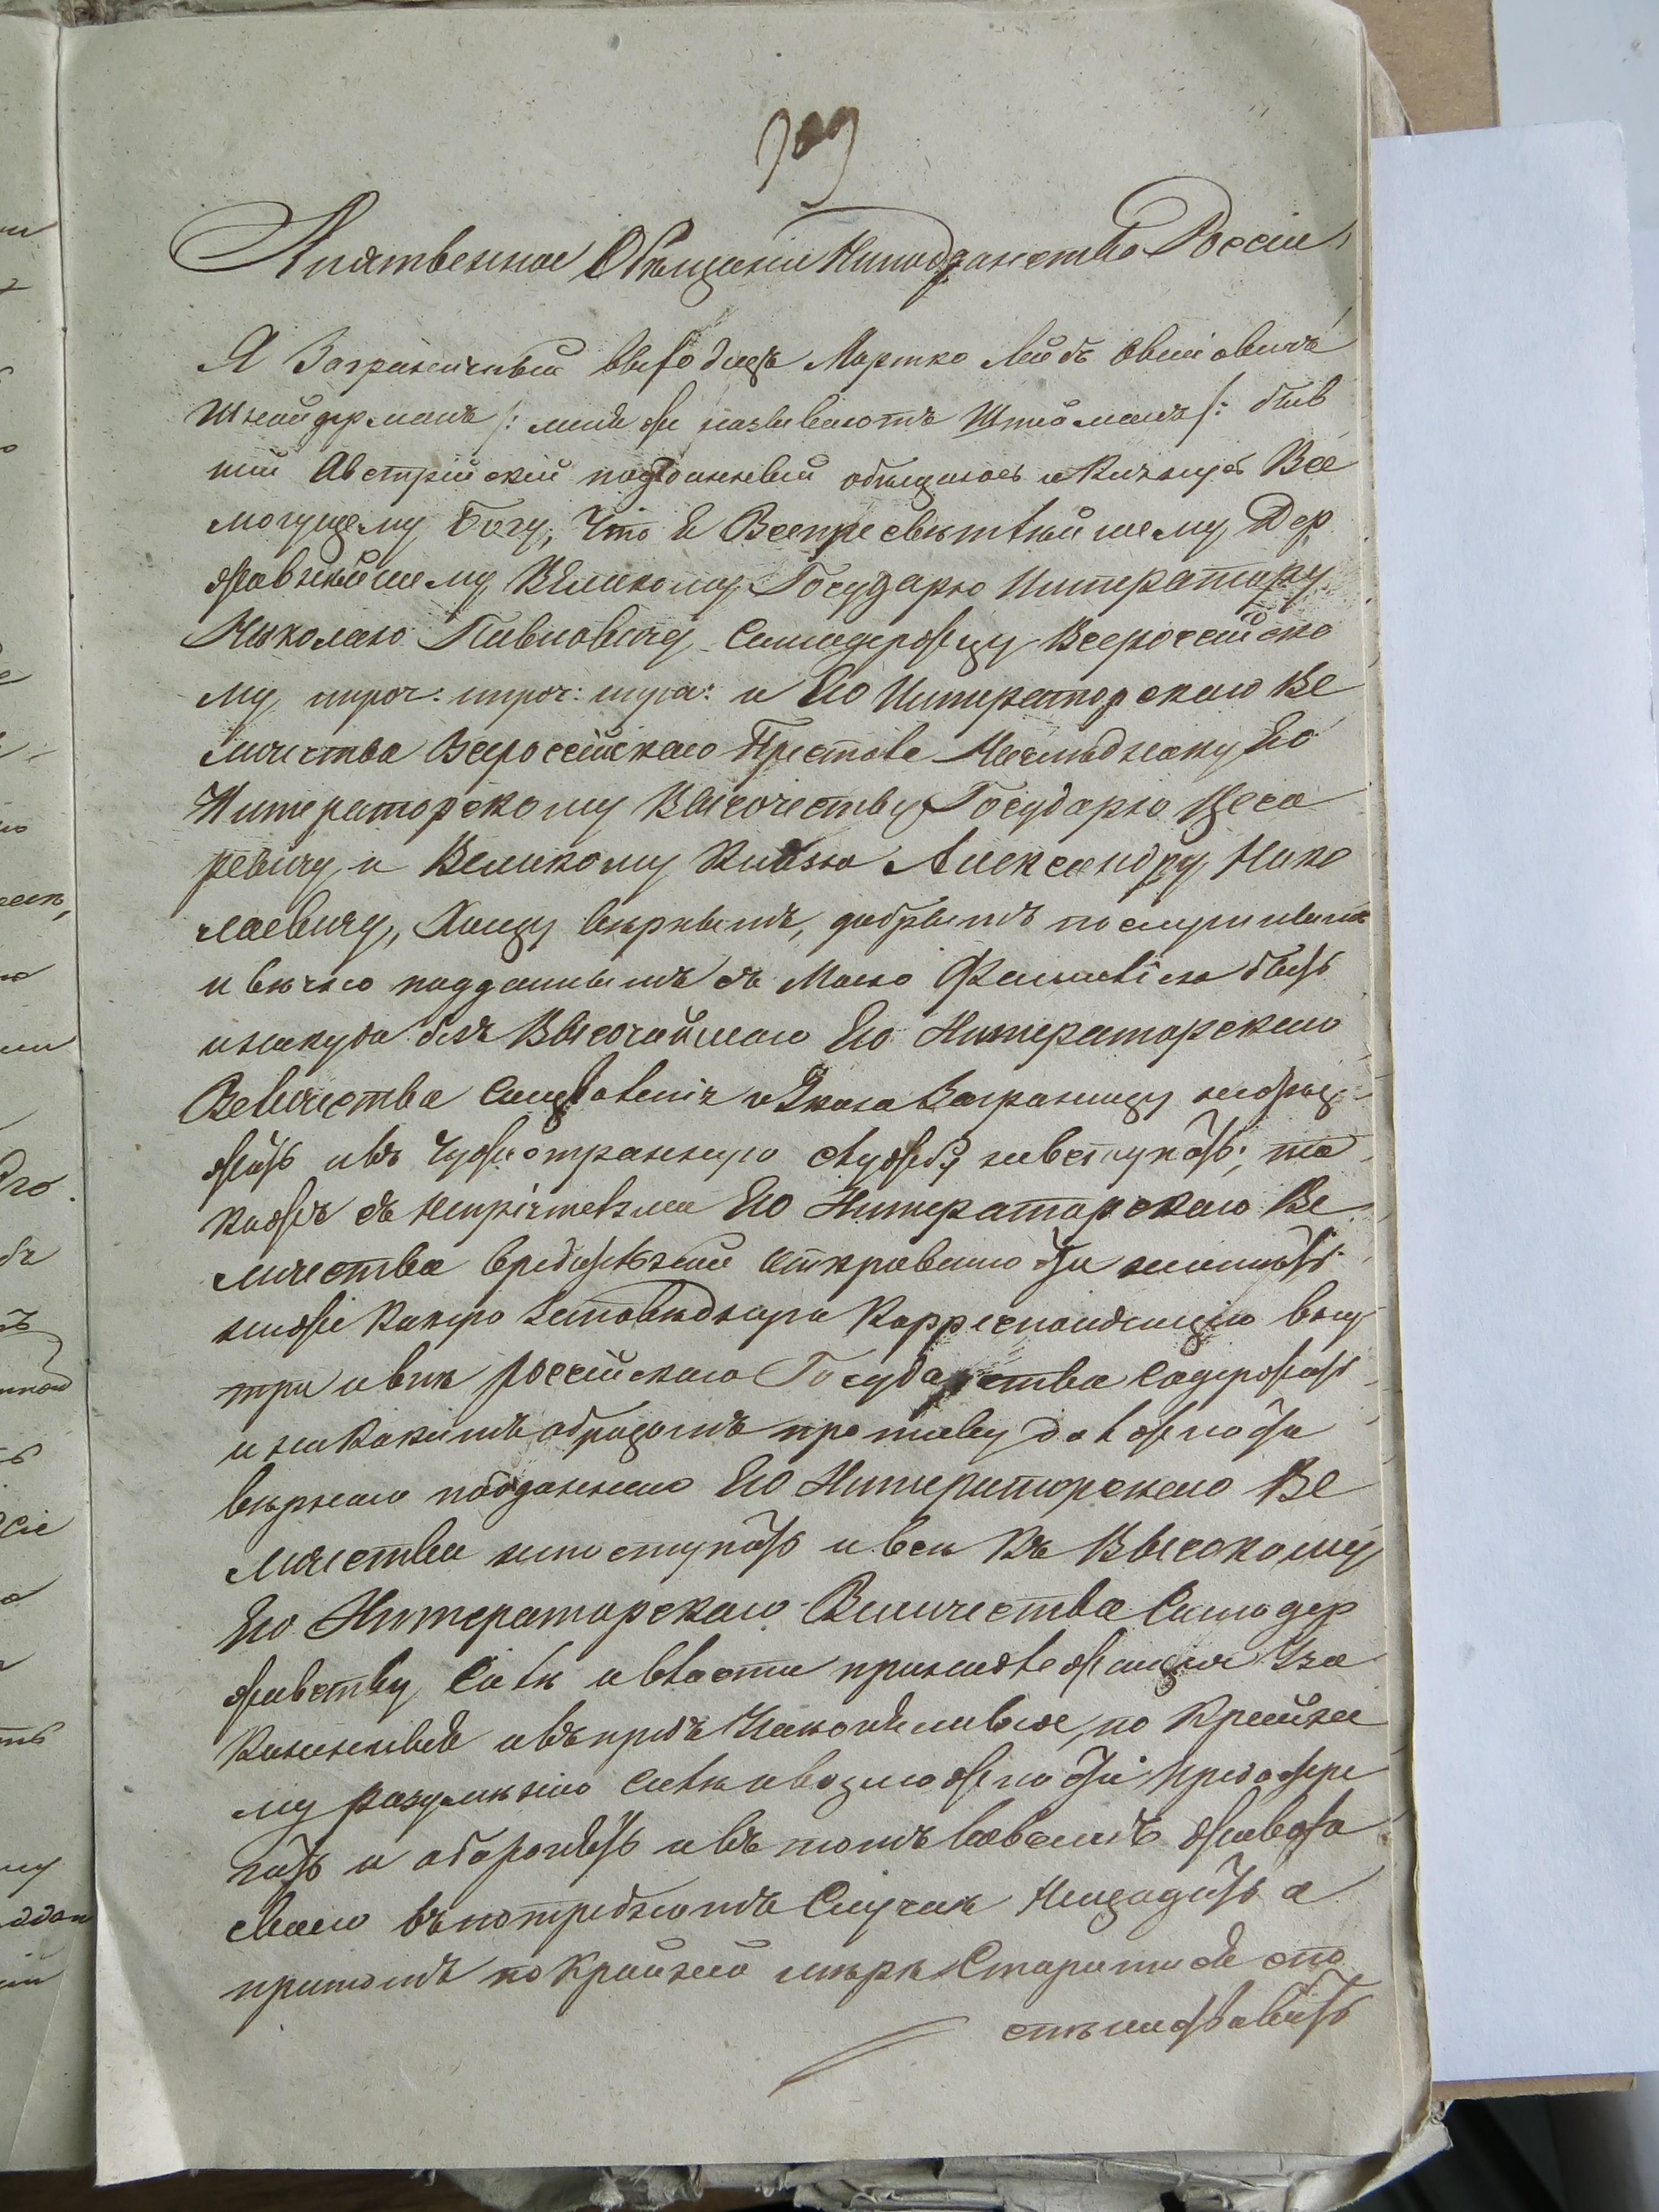 Клятвенное Обѣщаніе Наподданство Россіи
Я Заграничный выходецъ Мортко Лейбъ Овшіовичъ
Шнайдерманъ /: мнѣ же называютъ /: быв
шій Австрійскій подданный обѣщаюсь и Клянусь Все
могущему Богу, Что Е Всепресвѣтлѣйшему, Дер
жавнѣйшему Великому Государю Императору
Николаю Павловичу Самодержцу Всероссійско
му, проч: проч: проч: и Его Императорскаго Ве
личества Всероссійскаго Престола Наслѣднику Его
Императорскому Высочеству Государю Цеса
ревичу и Великому Князю Александру Нико
лаевичу, Хощу вѣрнымъ, добрымъ послушнымъ
и вѣчно подданнымъ съ Моею Фамиліею быть
и никуда безъ Высочайшаго Его Императорскаго
Величества Соизволенія и Указа Заграницу
и въ Чужестранную службу невступать; та
кожъ съ непріятельми Его Императорскаго Ве
личества вредительной откровенности неимѣть
ниже Какую заповѣдную Корреспонденцію вну
три и внѣ Россійскаго Государства Содержать
и никакимъ образомъ противу должности
вѣрнаго подданнаго Его Императорскаго Ве
личества непоступать и всѣ Къ Высокому
Его Императорскаго Величества Самодер
жавству Силѣ и власти принадлежащія Уза
коненныя и впредь Узаконяемыя, по Крайне
му разумѣнію Силѣ и возможности предостере
гать и оборонять и въ томъ живота
своего въ потребномъ Случаѣ Нещадить а
притомъ по Крайней мѣрѣ Старатися спо
спѣшествовать